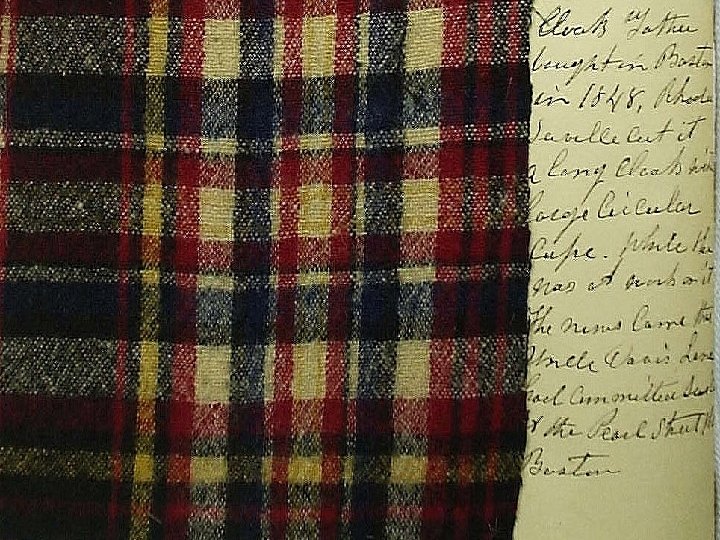 Cloak Father
bought in Boston
in 1848, Rhoda
Saville cut it
a long Cloak with
large Circular
Cape. While she
was at work on it
the news came that
Uncle Davis Lane
had committed
at the Pearl Street
Boston